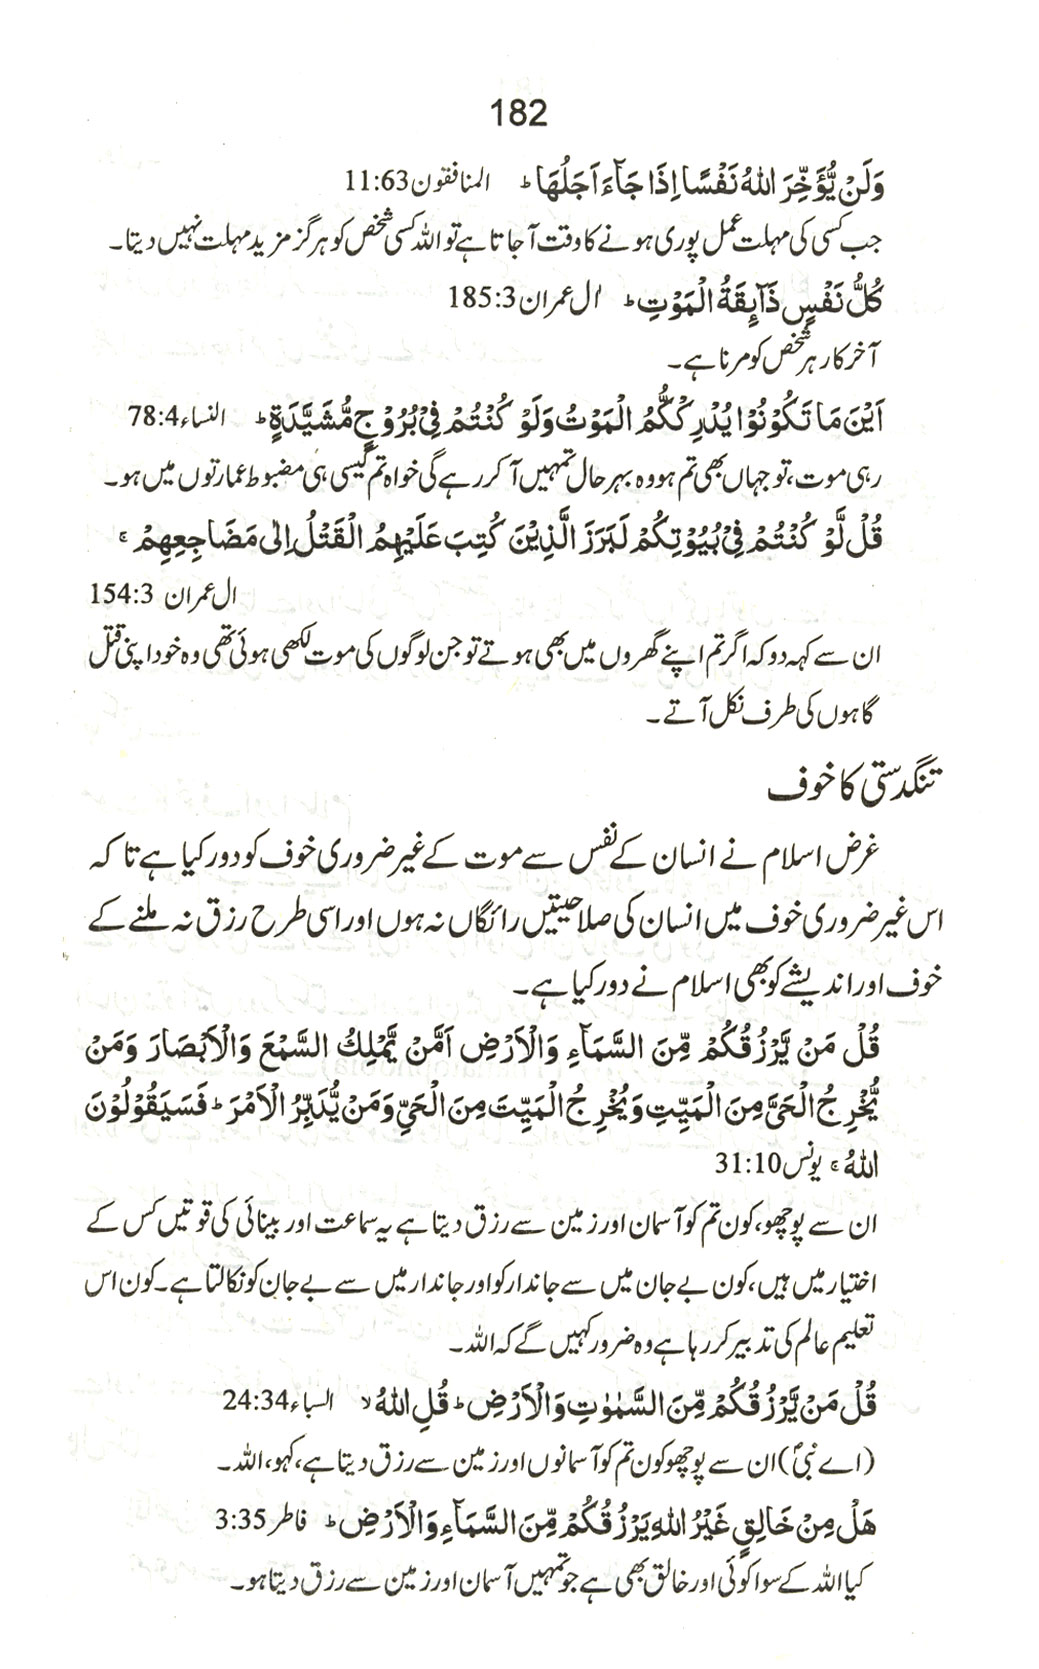 182
وَلَنْ يُّؤَخِّرَ اللّٰهُ نَفْسًا اِذَا جَآءَ اَجَلُهَا ؕ المنافقون 11:63
جب کسی کی مہلت عمل پوری ہونے کا وقت آ جاتا ہے تو اللہ کسی شخص کو ہرگز مزید مہلت نہیں دیتا۔
كُلُّ نَفْسٍ ذَآئِقَةُ الْمَوْتِ ؕ اٰل عمران 185:3
آخر کار ہر شخص کو مرنا ہے۔
اَيْنَ مَا تَكُوْنُوْا يُدْرِكْكُّمُ الْمَوْتُ وَلَوْ كُنْتُمْ فِيْ بُرُوْجٍ مُّشَيَّدَةٍ ؕ النساء 78:4
رہی موت، تو جہاں بھی تم ہو وہ بہر حال تمہیں آ کر رہے گی خواہ تم کیسی ہی مضبوط عمارتوں میں ہو۔
قُلْ لَّوْ كُنْتُمْ فِيْ بُيُوْتِكُمْ لَبَرَزَ الَّذِيْنَ كُتِبَ عَلَيْهِمُ الْقَتْلُ اِلٰى مَضَاجِعِهِمْ ۚ
ال عمران 154:3
ان سے کہہ دو کہ اگر تم اپنے گھروں میں بھی ہوتے تو جن لوگوں کی موت لکھی ہوئی تھی وہ خود اپنی قتل
گاہوں کی طرف نکل آتے۔
تنگدستی کا خوف
غرض اسلام نے انسان کے نفس سے موت کے غیر ضروری خوف کو دور کیا ہے تا کہ
اس غیر ضروری خوف میں انسان کی صلاحیتیں رائگاں نہ ہوں اور اسی طرح رزق نہ ملنے کے
خوف اور اندیشے کو بھی اسلام نے دور کیا ہے۔
قُلْ مَنْ يَّرْزُقُكُمْ مِّنَ السَّمَآءِ وَالْاَرْضِ اَمَّنْ يَّمْلِكُ السَّمْعَ وَالْاَبْصَارَ وَمَنْ
يُّخْرِجُ الْحَيَّ مِنَ الْمَيِّتِ وَيُخْرِجُ الْمَيِّتَ مِنَ الْحَيِّ وَمَنْ يُّدَبِّرُ الْاَمْرَ ؕ فَسَيَقُوْلُوْنَ
اللّٰهُ ۚ یونس 31:10
ان سے پوچھو، کون تم کو آسمان اور زمین سے رزق دیتا ہے یہ سماعت اور بینائی کی قوتیں کس کے
اختیار میں ہیں، کون بے جان میں سے جاندار کو اور جاندار میں سے بے جان کو نکالتا ہے۔ کون اس
تعلیم عالم کی تدبیر کر رہا ہے وہ ضرور کہیں گے کہ اللہ۔
قُلْ مَنْ يَّرْزُقُكُمْ مِّنَ السَّمٰوٰتِ وَالْاَرْضِ ؕ قُلِ اللّٰهُ ۙ السباء 24:34
(اے نبیؐ) ان سے پوچھو کون تم کو آسمانوں اور زمین سے رزق دیتا ہے، کہو، اللہ۔
هَلْ مِنْ خَالِقٍ غَيْرُ اللّٰهِ يَرْزُقُكُمْ مِّنَ السَّمَآءِ وَالْاَرْضِ ؕ فاطر 3:35
کیا اللہ کے سوا کوئی اور خالق بھی ہے جو تمہیں آسمان اور زمین سے رزق دیتا ہو۔